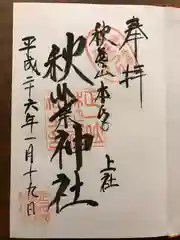 奉拝
秋葉山本宮
上社
秋葉神社
平成二十六年一月十九日